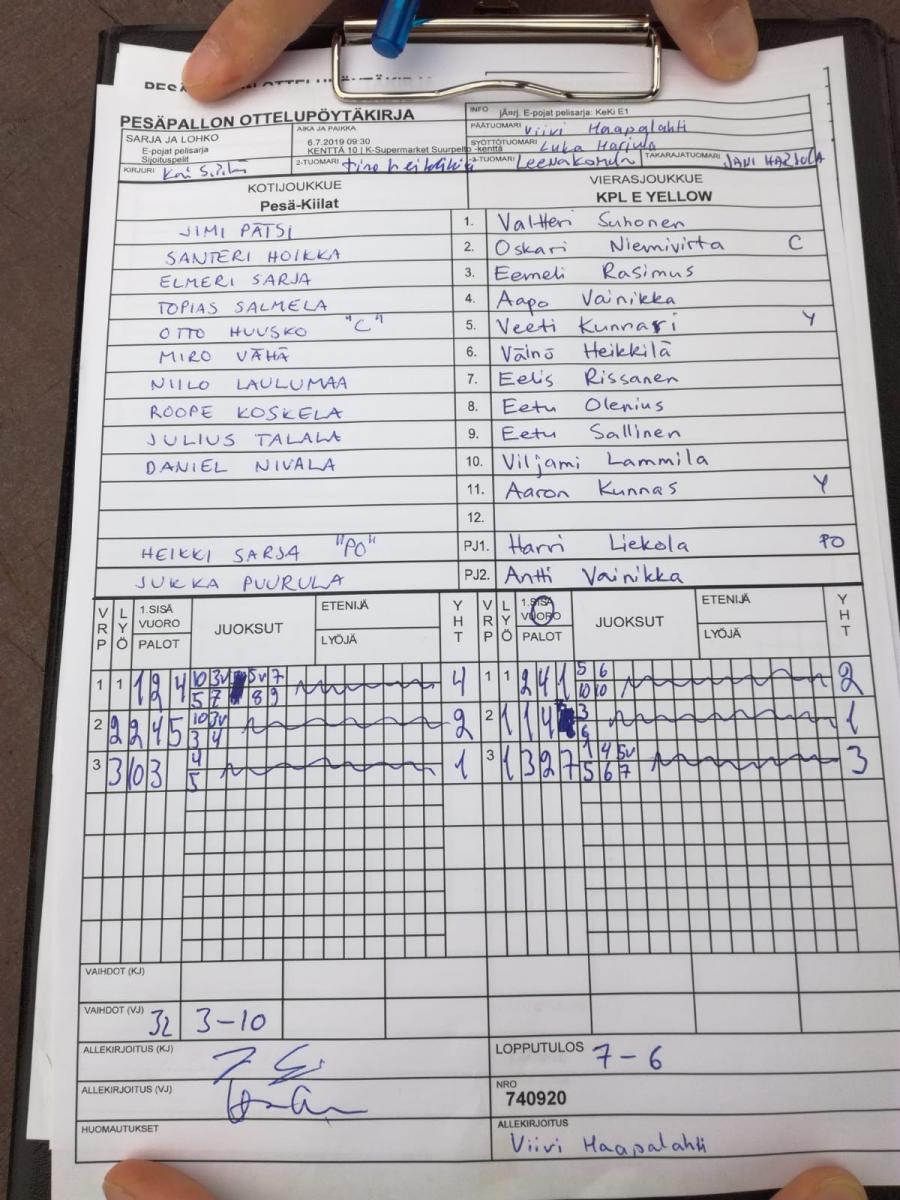 PESÄPALLON OTTELUPÖYTÄKIRJA
INFO jÄnrj. E-pojat pelisarja: KeKi E1
SARJA JA LOHKO
E-pojat pelisarja
Sijoituspelit
AIKA JA PAIKKA
6.7.2019 09:30
KENTTÄ 10 | K-Supermarket Suurpelto -kenttä
PÄÄTUOMARI Viivi Haapalahti
SYÖTTÖTUOMARI Luka Harjula
KIRJURI
2-TUOMARI
3-TUOMARI
TAKARAJATUOMARI JANI
KOTIJOUKKUE
Pesä-Kiilat
VIERASJOUKKUE
KPL E YELLOW
JIMI PÄTSI 1. Valtteri Suhonen
SANTERI HOIKKA 2. Oskari Niemivirta C
ELMERI SARJA 3. Eemeli Rasimus
TOPIAS SALMELA 4. Aapo Vainikka
OTTO HUUSKO "C" 5. Veeti Kunnari Y
MIRO VÄHÄ 6. Väinö Heikkilä
NIILO LAULUMAA 7. Eelis Rissanen
ROOPE KOSKELA 8. Eetu Olenius
JULIUS TALALA 9. Eetu Sallinen
DANIEL NIVALA 10. Viljami Lammila
11. Aaron Kunnas Y
12.
HEIKKI SARJA "PO" PJ1. Harri Liekola PO
JUKKA PUURULA PJ2. Antti Vainikka
VRP LYÖ 1.SISÄ VUORO PALOT JUOKSUT ETENIJÄ LYÖJÄ YHT VRP LYÖ 1.SISÄ VUORO PALOT JUOKSUT ETENIJÄ LYÖJÄ YHT
1 1 1 2 4 10 3v 5v 7 4 1 1 2 4 1 5 6 2
5 7 8 9 10 10
2 2 2 4 5 10 3v 2 2 1 1 4 3 1
3 4 6
3 3 10 3 4 1 3 1 3 2 7 1 4 5v 3
5 5 6 7
VAIHDOT (KJ)
VAIHDOT (VJ) 32 3-10
ALLEKIRJOITUS (KJ)
LOPPUTULOS 7-6
ALLEKIRJOITUS (VJ)
NRO
740920
HUOMAUTUKSET
ALLEKIRJOITUS
Viivi Haapalahti